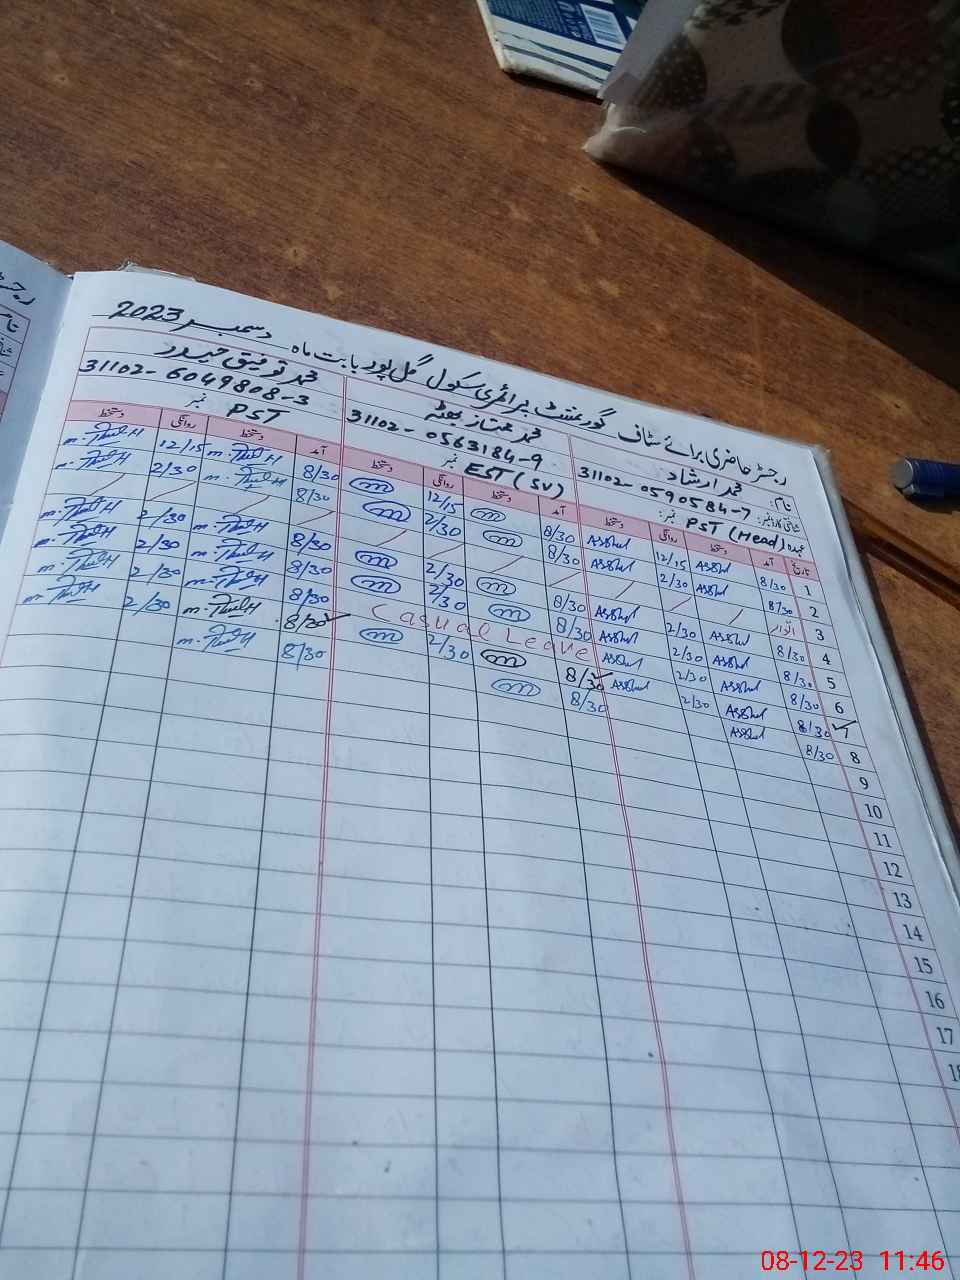 رجسٹر حاضری برائے سٹاف گورنمنٹ پرائمری سکول گل پور بابت ماہ دسمبر 2023
نام: محمد ارشاد محمد ممتاز بھٹہ محمد توفیق حیدر
شناختی کارڈ نمبر: 31102-0590584-7 31102-0563184-9 31102-6049808-3
عہدہ PST (Head) نمبر: EST (SV) نمبر PST نمبر
تاریخ آمد دستخط روانگی دستخط آمد دستخط روانگی دستخط آمد دستخط روانگی دستخط
1 8/30 Arshad 12/15 Arshad 8/30 m 12/15 m 8/30 12/15
2 8/30 Arshad 2/30 Arshad 8/30 m 2/30 m 8/30 2/30
3 اتوار
4 8/30 Arshad 2/30 Arshad 8/30 m 2/30 m 8/30 2/30
5 8/30 Arshad 2/30 Arshad 8/30 m 2/30 m 8/30 2/30
6 8/30 Arshad 2/30 Arshad Casual Leave 8/30 2/30
8/30 Arshad 2/30 Arshad 8/30 m 2/30 m 8/30 2/30
8 8/30 Arshad 8/30 m 8/30
9
10
11
12
13
14
15
16
17
18
08-12-23 11:46